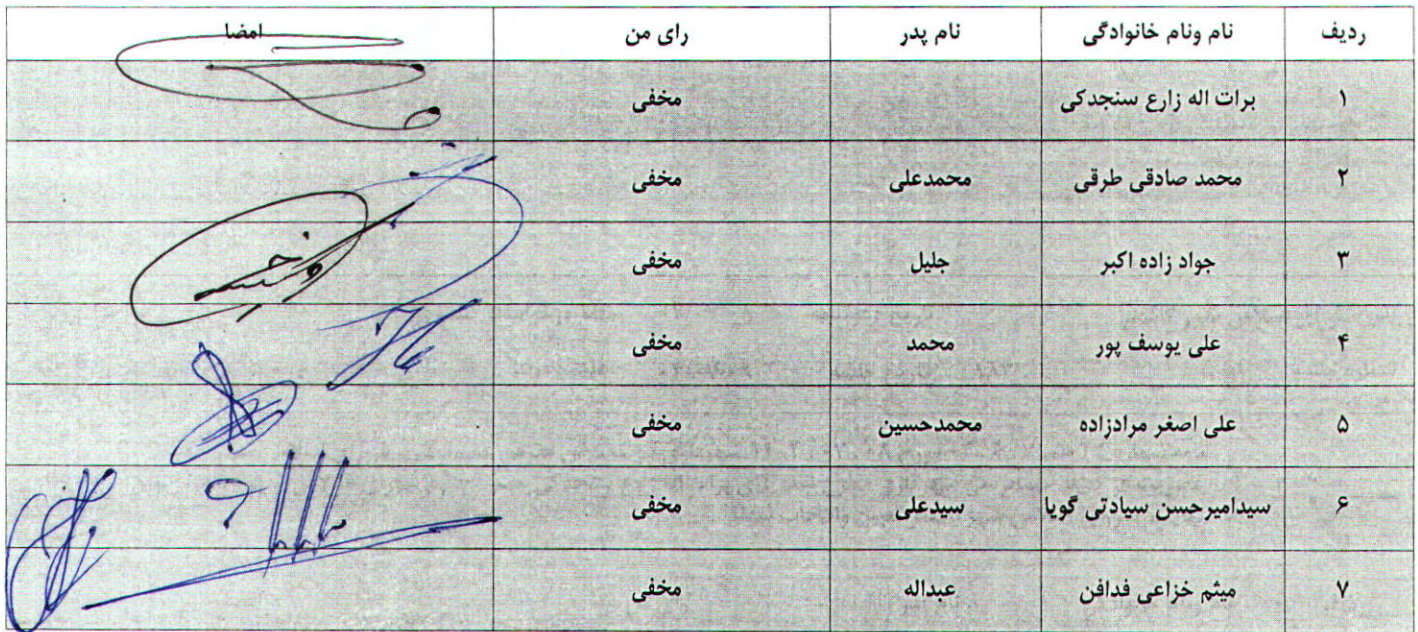 ردیف نام ونام خانوادگی نام پدر رای من امضا
۱ برات اله زارع سنجدکی مخفی
۲ محمد صادقی طرقی محمدعلی مخفی
۳ جواد زاده اکبر جلیل مخفی
۴ علی یوسف پور محمد مخفی
۵ علی اصغر مرادزاده محمدحسین مخفی
۶ سیدامیرحسن سیادتی گویا سیدعلی مخفی
۷ میثم خزاعی فدافن عبداله مخفی